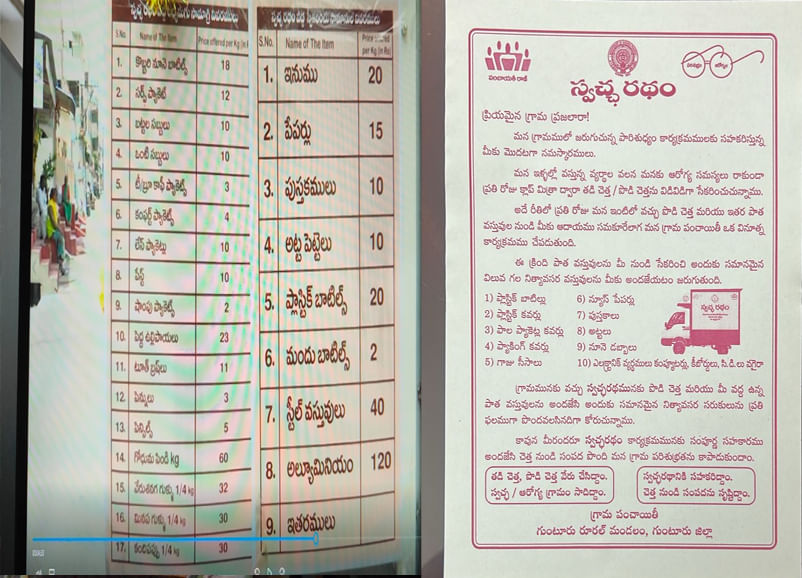 S.No.
Name of The Item
Price offered per Kg (in R
1. కొబ్బరి నూనె బాటిల్స్ 18
2. సర్ఫ్ ప్యాకెట్ 12
3. బట్టల సబ్బులు 10
4. ఒంటి సబ్బులు 10
5. టీ/బ్రూ కాఫీ ప్యాకెట్స్ 3
6. కంఫర్ట్ ప్యాకెట్స్ 4
7. లేస్ ప్యాకెట్లు 10
8. పేస్ట్ 10
9. షాంపు ప్యాకెట్స్ 2
10. పెద్ద ఉల్లిపాయలు 23
11. టూత్ బ్రష్‌లు 11
12. పెన్నులు 3
13. పెన్సిల్స్ 5
14. గోధుమ పిండి kg 60
15. వేరుశనగ గుళ్ళు 1/4 kg 32
16. మినప గుళ్ళు 1/4 kg 30
17. కందిపప్పు 1/4 kg 30
S.No.
Name of The Item
per Kg (in Rs)
1. ఇనుము 20
2. పేపర్లు 15
3. పుస్తకములు 10
4. అట్ట పెట్టెలు 10
5. ప్లాస్టిక్ బాటిల్స్ 20
6. మందు బాటిల్స్ 2
7. స్టీల్ వస్తువులు 40
8. అల్యూమినియం 120
9. ఇతరములు
పంచాయతీ రాజ్
స్వచ్ఛ రథం
ప్రియమైన గ్రామ ప్రజలారా!
మన గ్రామములో జరుగుచున్న పారిశుధ్యం కార్యక్రమములకు సహకరిస్తున్న
మీకు మొదటగా నమస్కారములు.
మన ఇళ్ళల్లో వస్తున్న వ్యర్థాల వలన మనకు ఆరోగ్య సమస్యలు రాకుండా
ప్రతి రోజు క్లాప్ మిత్రా ద్వారా తడి చెత్త / పొడి చెత్తను విడివిడిగా సేకరించుచున్నాము.
అదే రీతిలో ప్రతి రోజు మన ఇంటిలో వచ్చు పొడి చెత్త మరియు ఇతర పాత
వస్తువుల నుండి మీకు ఆదాయము సమకూరేలాగ మన గ్రామ పంచాయితీ ఒక వినూత్న
కార్యక్రమము చేపడుతుంది.
ఈ క్రింది పాత వస్తువులను మీ నుండి సేకరించి అందుకు సమానమైన
విలువ గల నిత్యావసర వస్తువులను మీకు అందజేయటం జరుగుతుంది.
1) ప్లాస్టిక్ బాటిల్లు 6) న్యూస్ పేపర్లు
2) ప్లాస్టిక్ కవర్లు 7) పుస్తకాలు
3) పాల ప్యాకెట్ల కవర్లు 8) అట్టలు
4) ప్యాకింగ్ కవర్లు 9) నూనె డబ్బాలు
5) గాజు సీసాలు 10) ఎలక్ట్రానిక్ వ్యర్థములు కంప్యూటర్లు, కీబోర్డులు, సి.డి.లు వగైరా
స్వచ్ఛ రథం
గ్రామమునకు వచ్చు స్వచ్ఛరథమునకు పొడి చెత్త మరియు మీ వద్ద ఉన్న
పాత వస్తువులను అందజేసి అందుకు సమానమైన నిత్యావసర సరుకులను ప్రతి
ఫలముగా పొందవలసినదిగా కోరుచున్నాము.
కావున మీరందరూ స్వచ్ఛరథం కార్యక్రమమునకు సంపూర్ణ సహకారము
అందజేసి చెత్త నుండి సంపద పొంది మన గ్రామ పరిశుభ్రతను కాపాడుకుందాం.
తడి చెత్త, పొడి చెత్త వేరు చేసిద్దాం.
స్వచ్ఛ / ఆరోగ్య గ్రామం సాదిద్దాం.
స్వచ్ఛరథానికి సహకరిద్దాం.
చెత్త నుండి సంపదను సృష్టిద్దాం.
గ్రామ పంచాయితీ
గుంటూరు రూరల్ మండలం, గుంటూరు జిల్లా